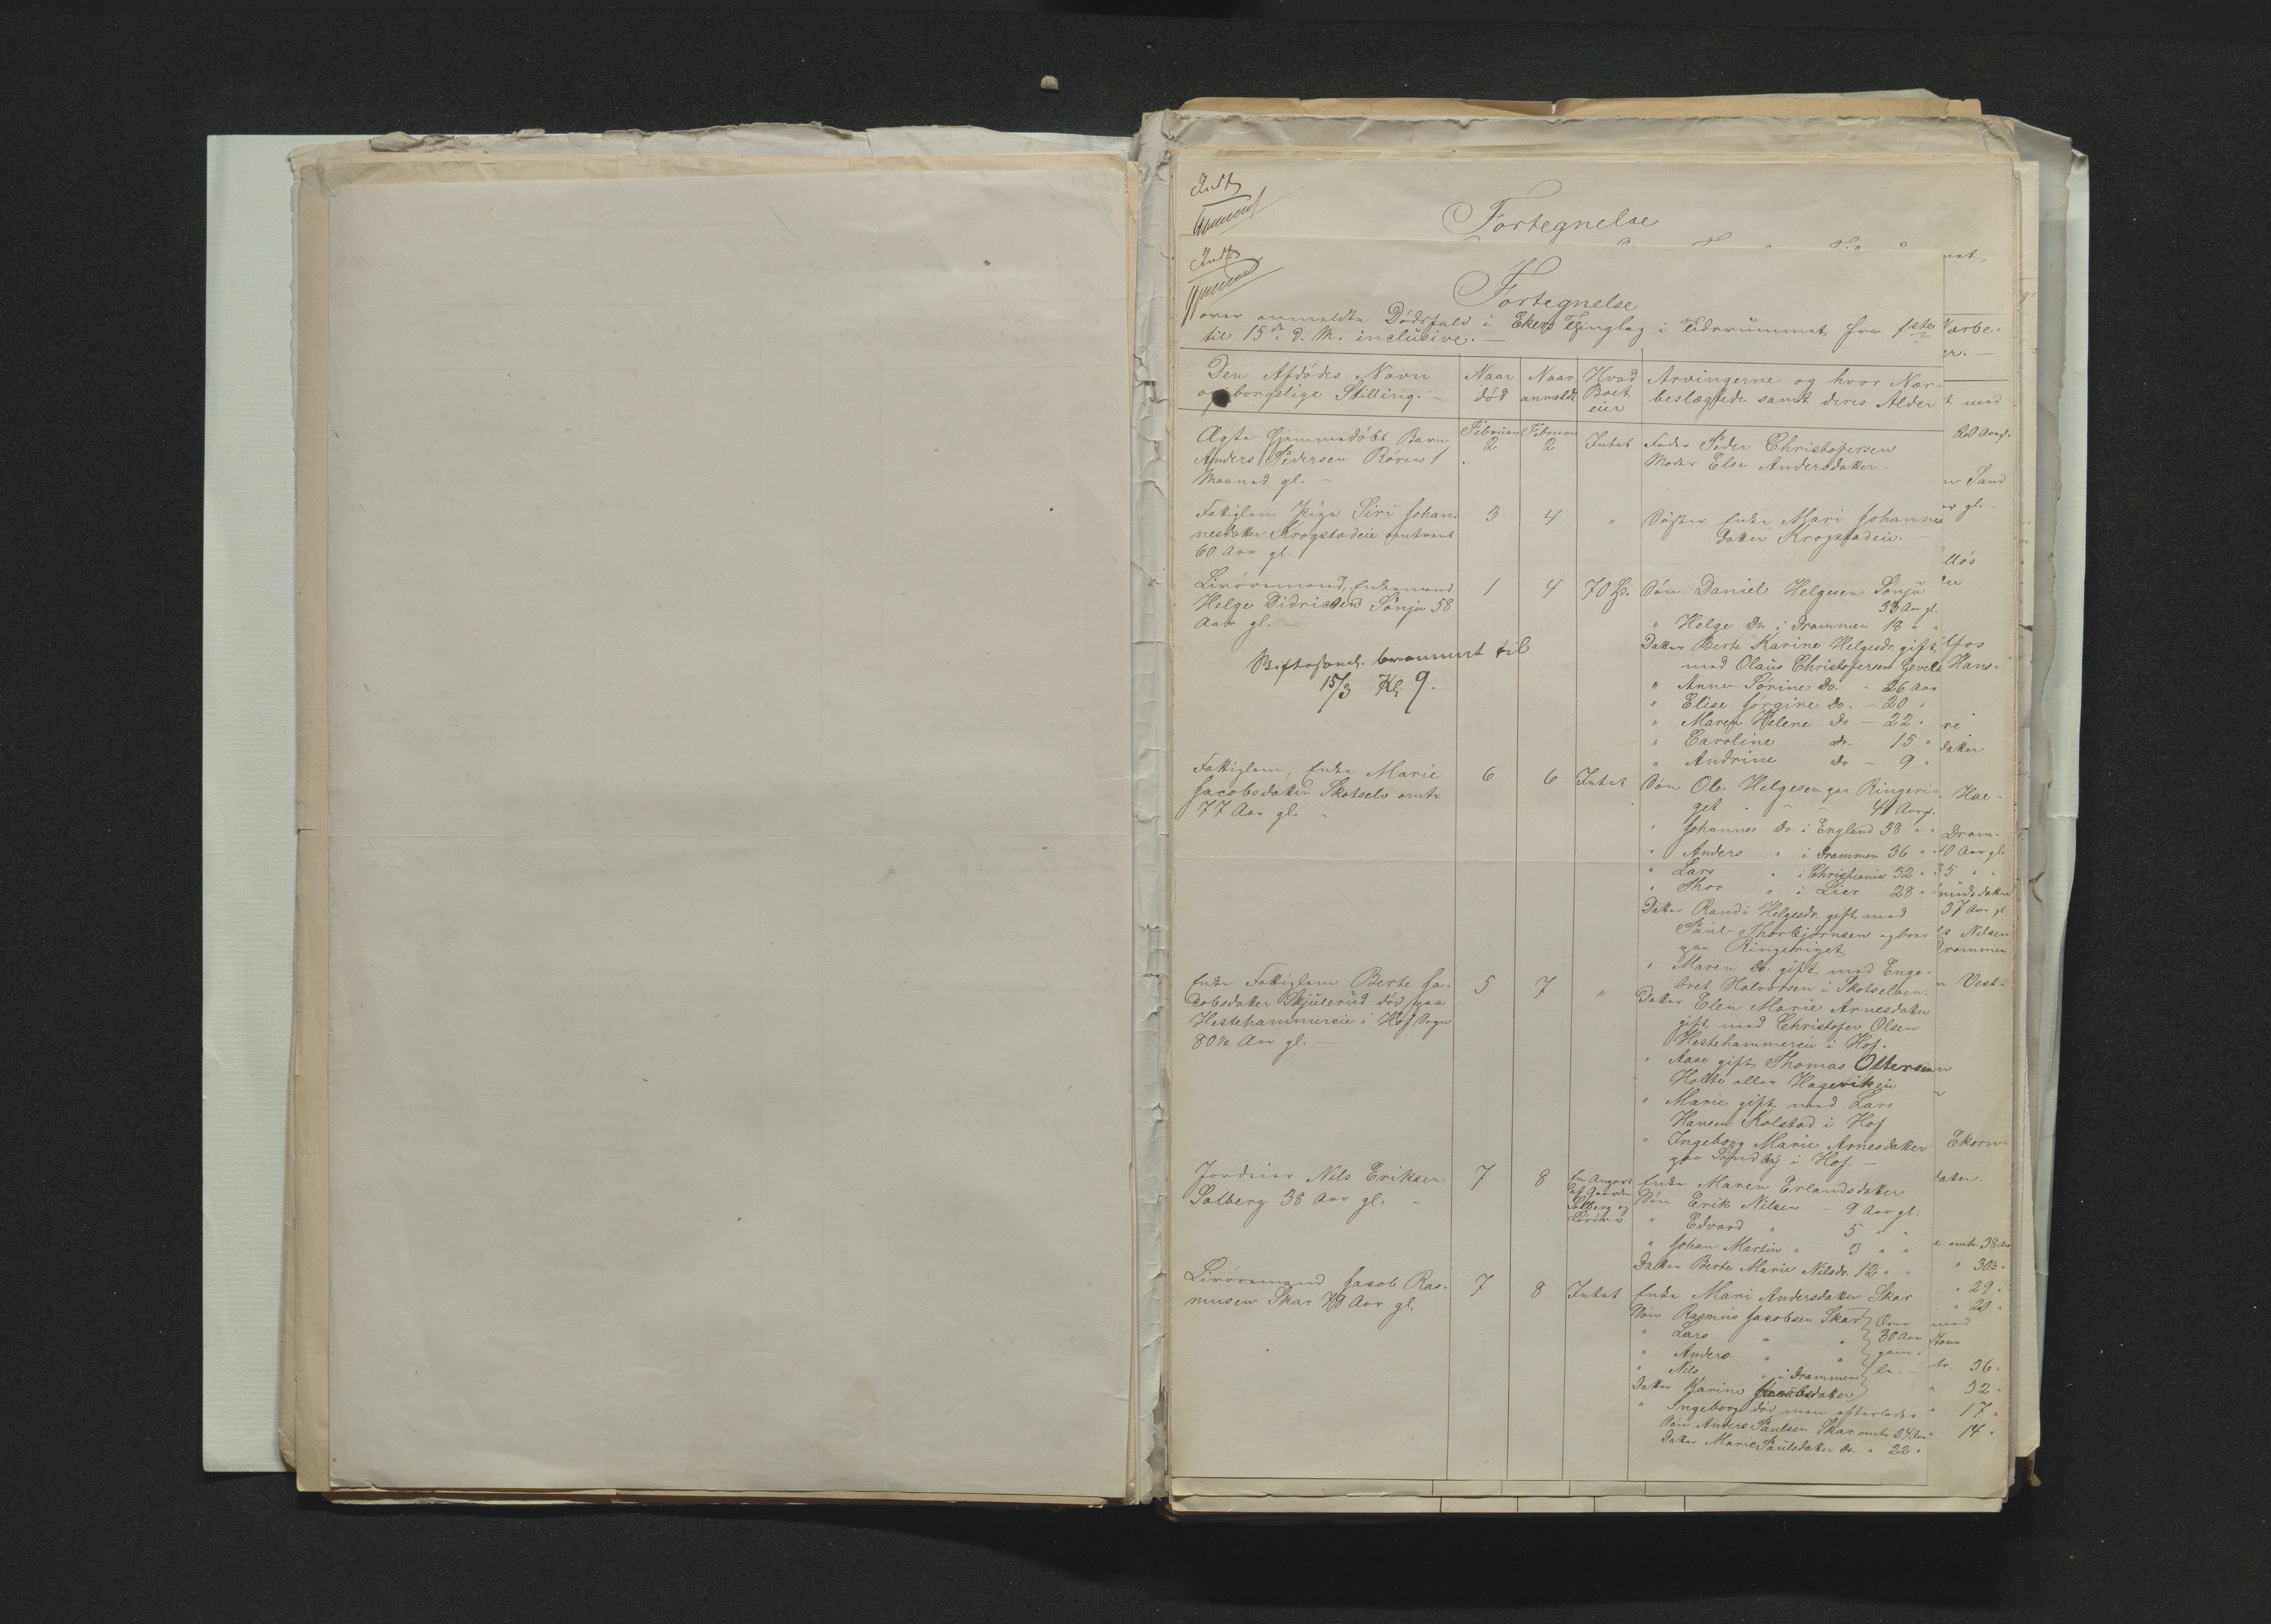 Fortegnelse
Fortegnelse
over anmeldte Dødsfald i Ekers Thinglag i Tidsrummet fra 1ste
til 15de d. M. inclusive. —
Den Afdødes Navn
og borgelige Stilling. —
Naar
død
Naar
anmeldt
Hvad
Boet
eier
Arvingerne og hvor Nær-
beslægtede samt deres Alder.
Ægte hjemmedøbt Barn
Anders Pedersen Røren 1
Maaned gl. —
Februar
2
Februar
2
Intet
Fader Peder Christofersen
Moder Else Andersdatter
Fattiglem Pige Siri Johan-
nesdatter Krogstadeie omtrent
60 Aar gl.
3
4
"
Søster Enke Mari Johannes
Datter Krogstadeie. —
Livøremand, Enkemand
Helge Didriksen Sønju 58
Aar gl. —
1
4
70 Sp.
Søn Daniel Helgesen Sønju
33 Aar gl.
" Helge Do. i Drammen 18 " "
Datter Berte Karine Helgesdr. gift
med Olaus Christofersen Gevelt
" Anne Sørine Do. - 26 Aar
" Elise Jørgine Do. - 20 "
" Maren Helene Do - 22 "
" Caroline Do. 15 "
" Andrine Do - 9 "
Skiftesaml. berammet til
15/3 Kl. 9.
Fattiglem, Enke Marie
Jacobsdatter Skotselv omtr.
77 Aar gl. —
6
6
Intet
Søn Ole Helgesen paa Ringeri-
get - 41 Aar gl.
" Johannes Do. i England 38 " "
" Anders " i Drammen 36 "
" Lars " i Christiania 32 "
" Thor " i Lier 28 "
Datter Randi Helgesdr. gift med
Paul Thorbjørnsen og boer
paa Ringeriget
" Maren Do. gift med Enge-
bret Halvorsen i Skotselven.
Enke Fattiglem Berte Ja-
cobsdatter Skjulerud død paa
Hestehammereie i Hof Sogn
80½ Aar gl. —
5
7
"
Datter Elen Marie Arnesdatter
gift med Christofer Olsen
Hestehammereie i Hof.
" Aase gift Thomas Ottersen
Holte eller Hagevikeie
" Marie gift med Lars
Hansen Kolstad i Hof
" Ingeborg Marie Arnesdatter
paa Sundby i Hof. —
Jordeier Nils Eriksen
Solberg 38 Aar gl. -
7
8
Solberg og
Enke Maren Erlandsdatter
Søn Erik Nilsen - 9 Aar gl.
" Edvard " 5 " "
" Johan Martin " 3 " "
Datter Berte Marie Nilsdr. 12 " "
Livøremand Jacob Ras-
musen Skar 78 Aar gl.
7
8
Intet
Enke Mari Andersdatter Skar
Søn Rasmus Jacobsen Skar
" Lars " "
" Anders " "
" Nils " i Drammen
Datter Karine Jacobsdatter
Over
30 Aar
gam-
le. -
" Ingeborg død men efterlader
Søn Anders Paulsen Skar omtr. 24 Aar
Datter Marie Paulsdatter Do. " 22 "